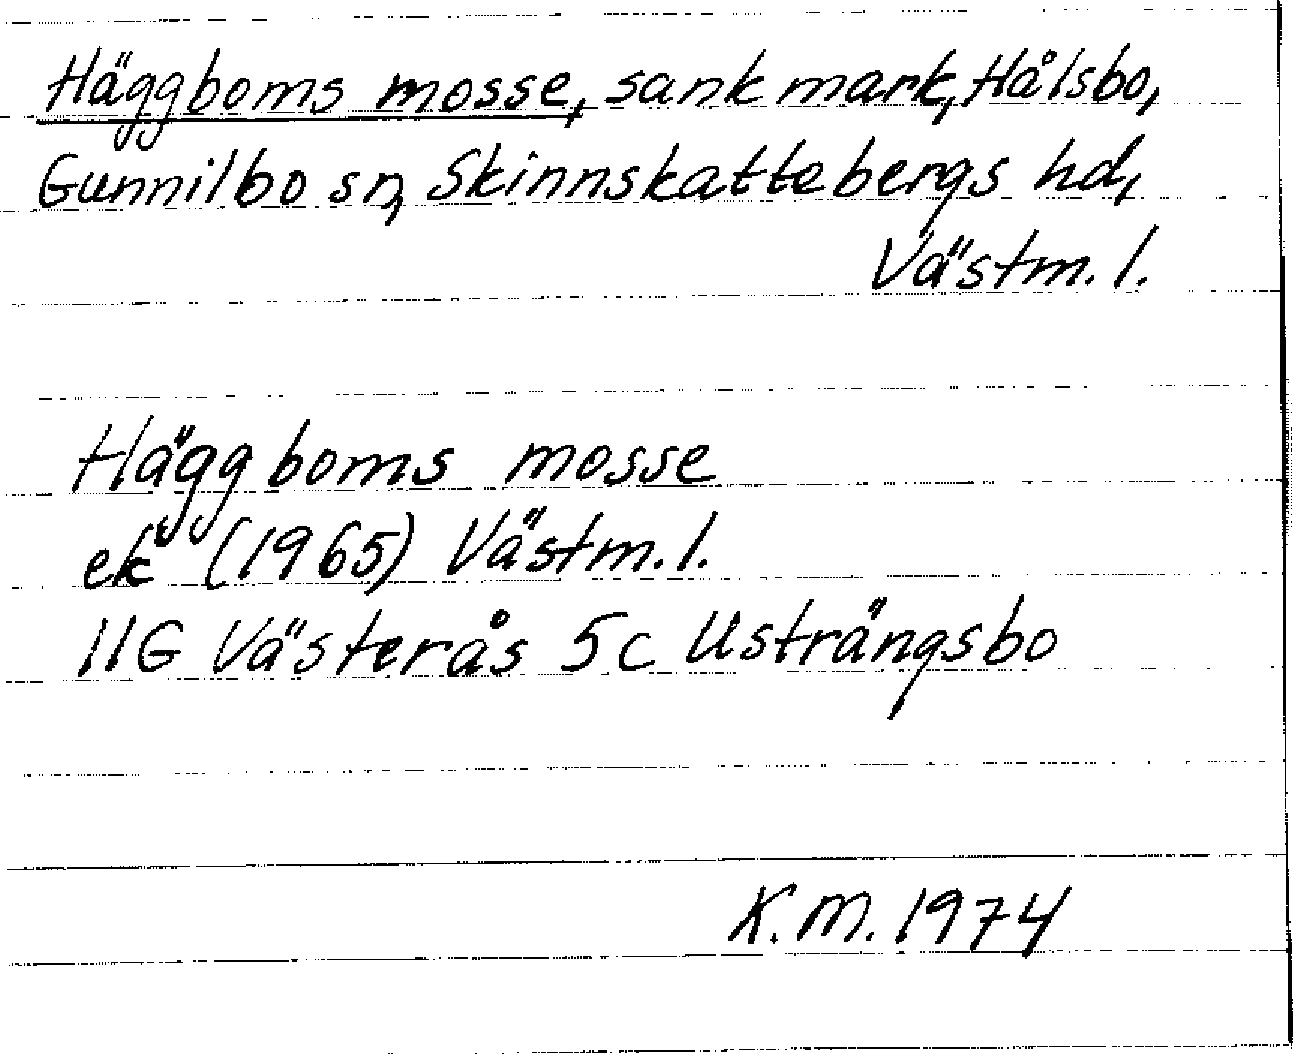 Häggboms mosse, sank mark, Hålsbo,
Gunnilbo sn, Skinnskattebergs hd,
Västm. l.
Häggboms mosse
ek (1965) Västm. l.
11G Västerås 5c Usträngsbo
K.M. 1974